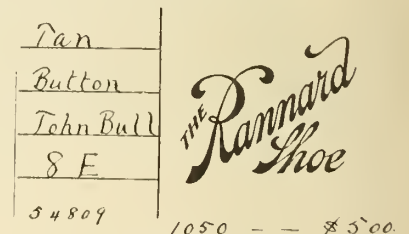 Tan
Button
John Bull
8 E
54809
THE
Rannard
Shoe
1050 - - $5.00.